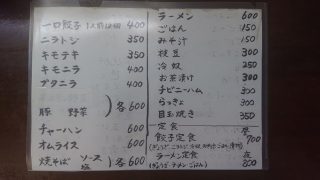 一口餃子 1人前12個 400
ニラトジ 350
キモテキ 350
キモニラ 400
ブタニラ 400
豚 野菜 ) 各600
チャーハン 600
オムライス 600
焼そば ソース 塩 ) 各600
ラーメン 600
ごはん 150
みそ汁 150
枝豆 300
冷奴 250
お茶漬け 300
チビニーハム 300
らっきょ 300
目玉焼き 350
定食 昼
餃子定食 700
ラーメン定食 夜
850